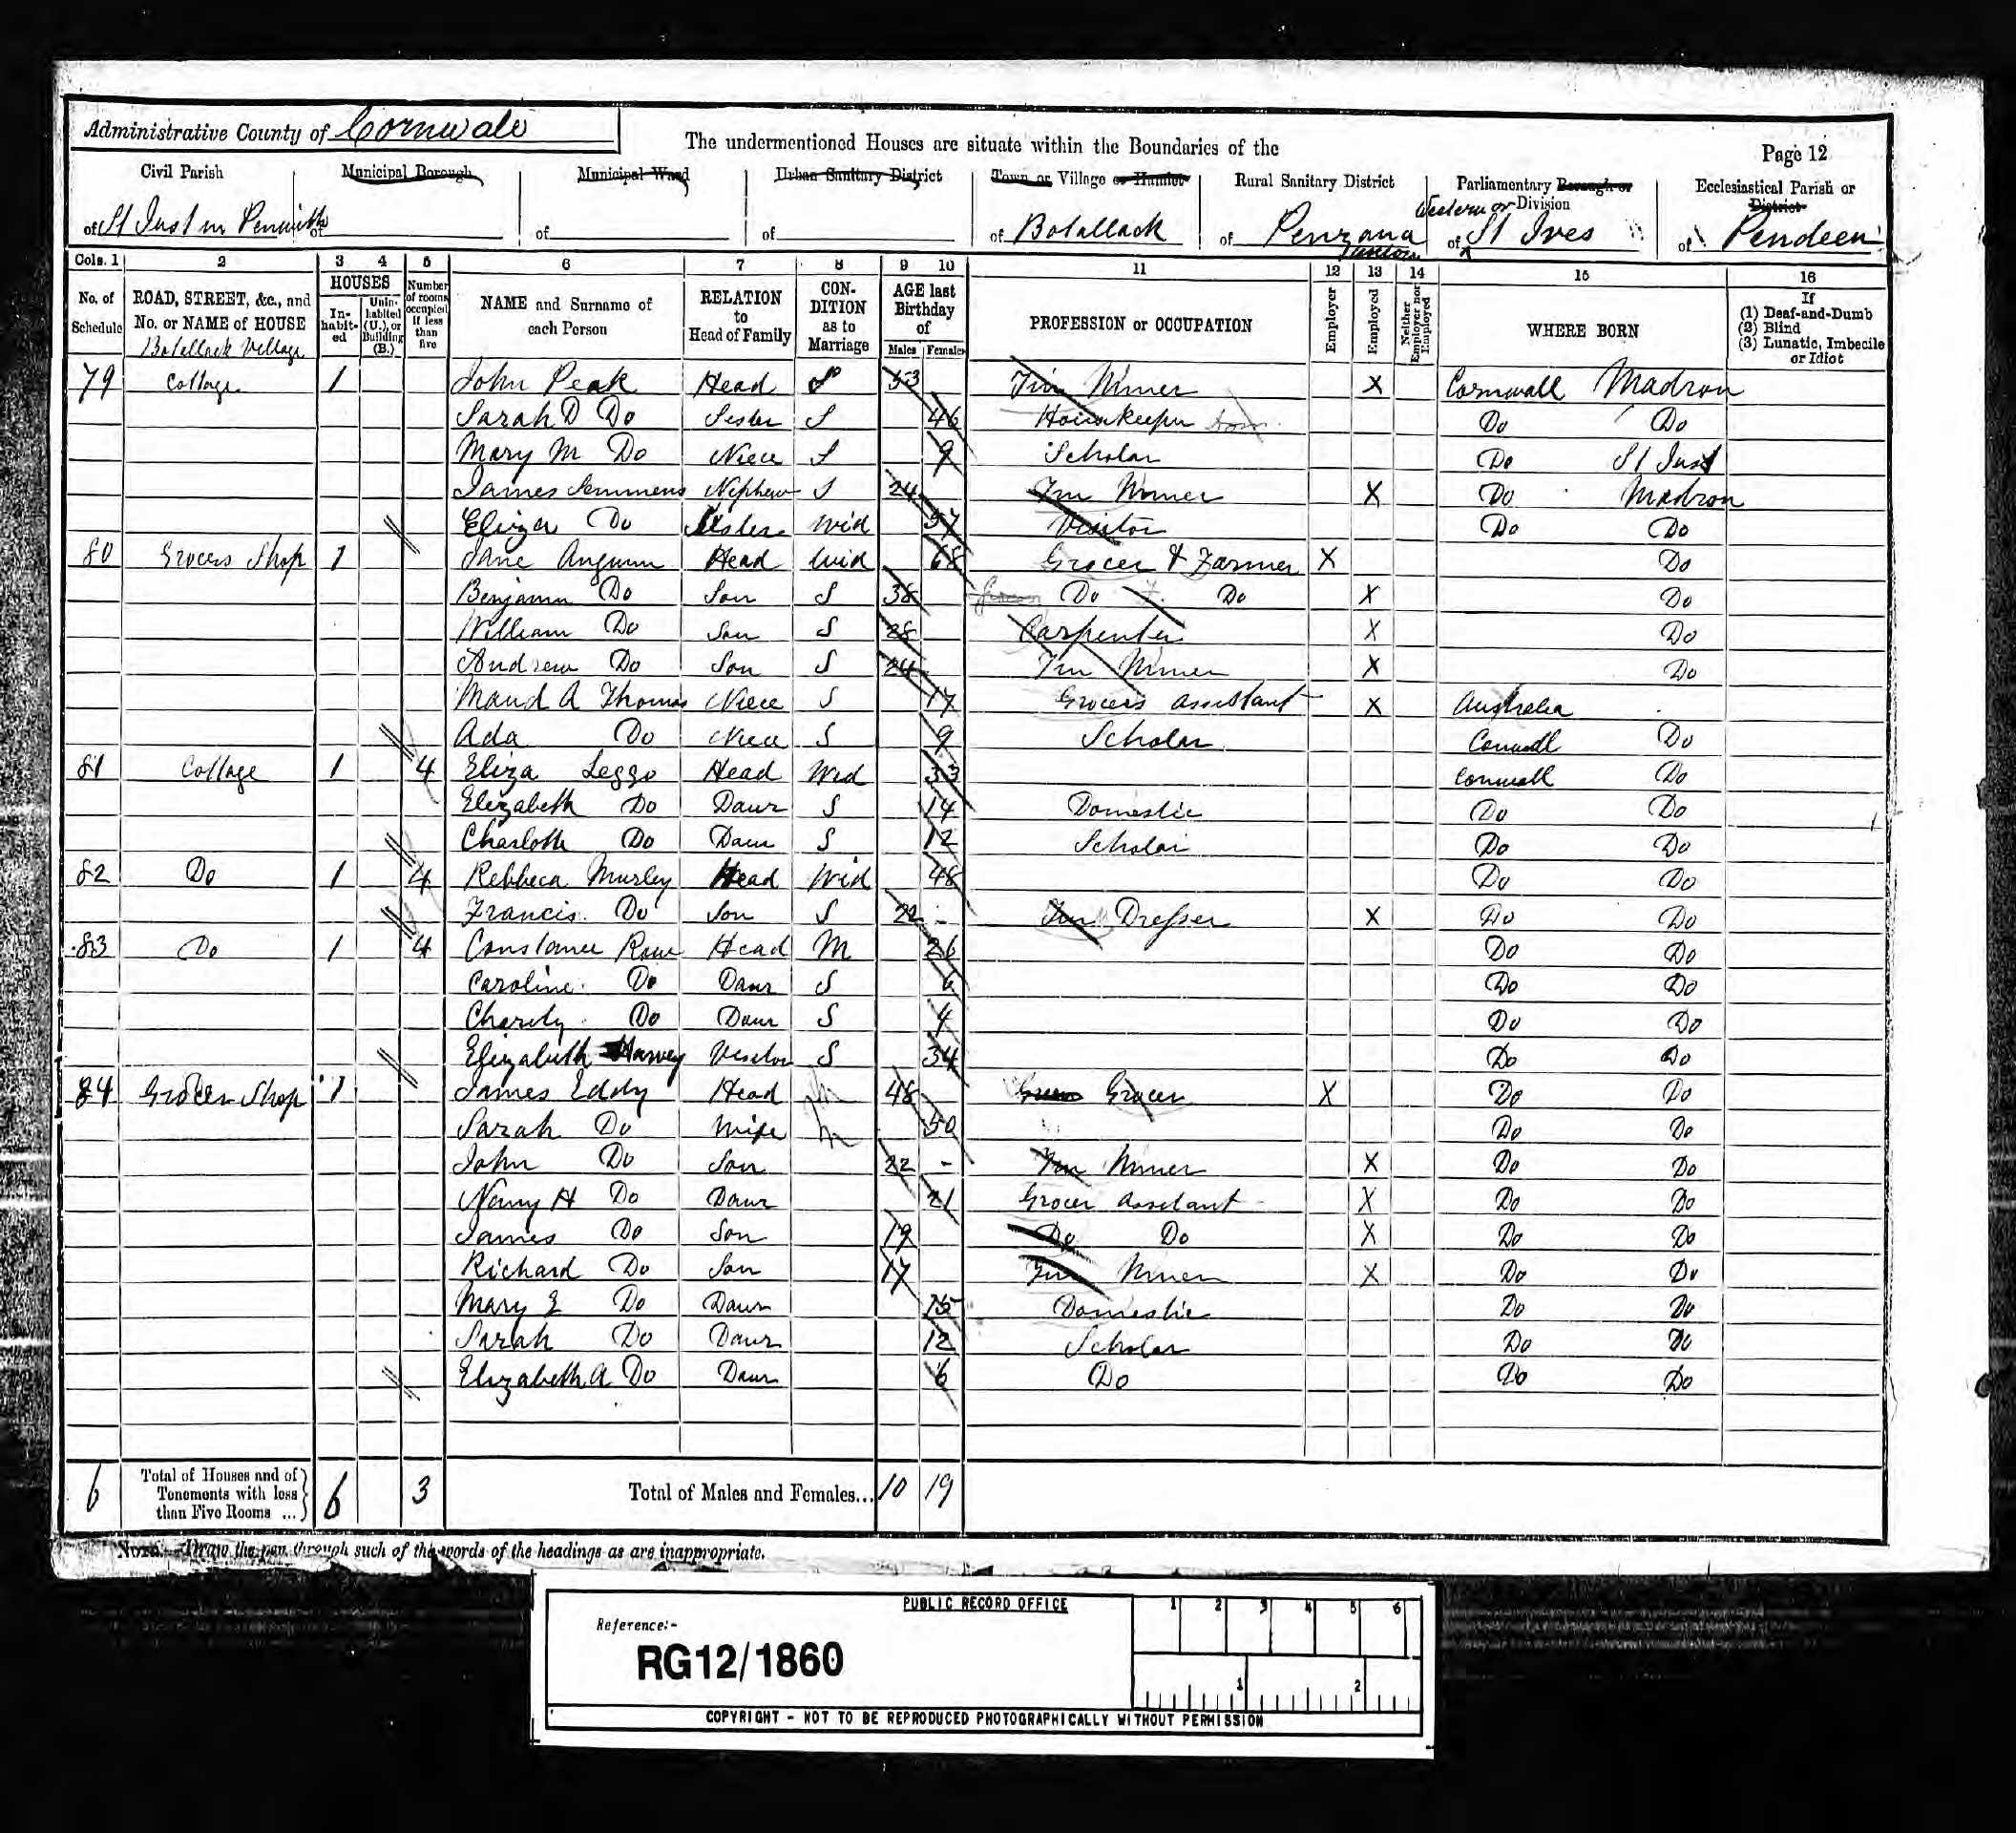 Administrative County of Cornwall
The undermentioned Houses are situate within the Boundaries of the
Page 12
Civil Parish
of St Just in Penwith
Municipal Borough
of
Municipal Ward
of
Urban Sanitary District
of
Town or Village or Hamlet
of Botallack
Rural Sanitary District
of Penzance
Parliamentary Borough or
Western or Division
of St Ives
Ecclesiastical Parish or
District
of Pendeen
Cols. 1 2 3 4 5 6 7 8 9 10 11 12 13 14 15 16
No. of Schedule
ROAD, STREET, &c., and No. or NAME of HOUSE
Botallack Village
HOUSES
In-habit-ed
Unin-habited (U.), or Building (B.)
Number of rooms occupied if less than five
NAME and Surname of each Person
RELATION to Head of Family
CON-DITION as to Marriage
AGE last Birthday of
Males Females
PROFESSION or OCCUPATION
Employer
Employed
Neither Employer nor Employed
WHERE BORN
If
(1) Deaf-and-Dumb
(2) Blind
(3) Lunatic, Imbecile or Idiot
79 Cottage 1 John Peak Head S 53 Tin Miner X Cornwall Madron
Sarah D Do Sister S 46 Housekeeper Dom Do Do
Mary M Do Niece S 9 Scholar Do St Just
James Semmens Nephew S 24 Tin Miner X Do Madron
Eliza Do Sister Wid 57 Visitor Do Do
80 Grocers Shop 1 Jane Angwin Head Wid 68 Grocer & Farmer X Do
Benjamin Do Son S 38 Do Do X Do
William Do Son S 28 Carpenter X Do
Andrew Do Son S 24 Tin Miner X Do
Maud A Thomas Niece S 17 Grocers Assistant X Australia
Ada Do Niece S 9 Scholar Cornwall Do
81 Cottage 1 4 Eliza Leggo Head Wid 33 Cornwall Do
Elizabeth Do Daur S 14 Domestic Do Do
Charlotte Do Daur S 12 Scholar Do Do
82 Do 1 4 Rebbeca Murley Head Wid 48 Do Do
Francis Do Son S 22 Tin Dresser X Do Do
83 Do 1 4 Constance Rowe Head M 26 Do Do
Caroline Do Daur S 6 Do Do
Charity Do Daur S 4 Do Do
Elizabeth Harvey Visitor S 34 Do Do
84 Grocer Shop 1 James Eddy Head M 48 Grocer X Do Do
Sarah Do Wife M 50 Do Do
John Do Son 22 - Tin Miner X Do Do
Nanny H Do Daur 21 Grocer Assistant X Do Do
James Do Son 19 Do Do X Do Do
Richard Do Son 17 Tin Miner X Do Do
Mary E Do Daur 15 Domestic Do Do
Sarah Do Daur 12 Scholar Do Do
Elizabeth A Do Daur 6 Do Do Do
6 Total of Houses and of Tenements with less than Five Rooms ... 6 3 Total of Males and Females... 10 19
NOTE.—Draw the pen through such of the words of the headings as are inappropriate.
PUBLIC RECORD OFFICE
1 2 3 4 5 6
Reference:-
RG12/1860
1 2
COPYRIGHT - NOT TO BE REPRODUCED PHOTOGRAPHICALLY WITHOUT PERMISSION